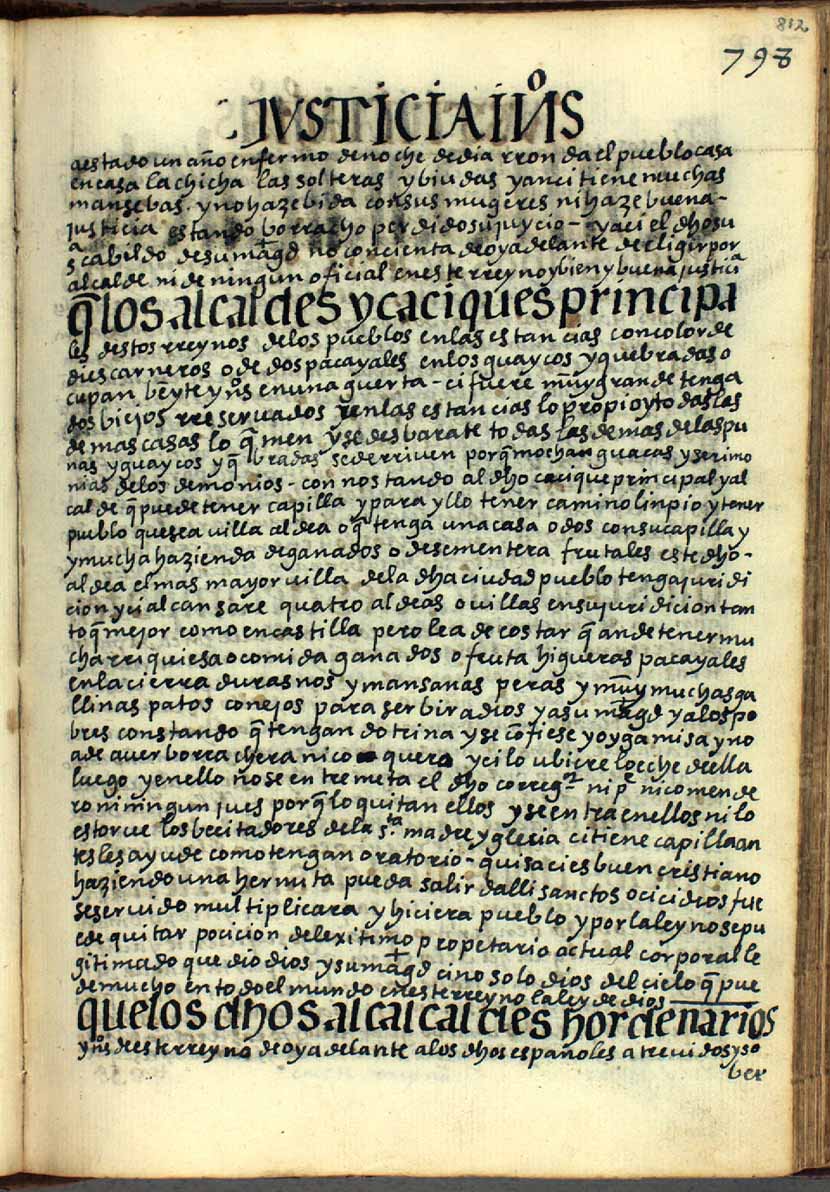 812
798
JVSTICIA iv̊s
aestado un año enfermo de noche de dia rronda el pueblo casa
en casa la chicha las solteras y biudas y anci tiene muchas
mansebas y no haze bida con sus mugeres ni haze buena
justicia estando borracho perdido su juycio – y aci el dho su
cabildo de su mag̃d no concienta de oy adelante de eligir por
alcalde ni de ningun oficial en este rreyno y bien y buena justicia
q̃ los alcaldes y caciques principa
les destos rreynos de los pueblos en las estancias con color de
dies carneros o de dos pacayales en los guaycos y quebradas o
cupan beynte yn̊s en una guerta – ci fuere muy grande tenga
dos biejos rreservados y en las estancias lo propio y todas las
demas casas lo q̃men y se desbarate todas las demas de las pu
nas y guaycos y q̃bradas se derriven porq̃ mochan guacas y serimo
nias de los demonios – constando al dho cacique principal y al
calde q̃ puede tener capilla y para yllo tener camino linpio y tener
pueblo que sea villa aldea o q̃ tenga una casa o dos con su capilla y
y mucha hazienda de ganados o de sementera frutales este dho –
aldea el mas mayor villa de la dha ciudad pueblo tenga juridi
cion y ci alcansare quatro aldeas o villas en su juridicion tan
to q̃ mejor como en castilla pero le a de costar q̃ an de tener mu
cha rriquiesa o comida ganados o fruta higueras pacayales
en la cierra durasnos y mansanas peras y muy muchas ga
llinas patos conejos para serbir a dios y a su mag̃d y a los po
bres constando q̃ tengan dotrina y se cõfiese y oyga misa y no
a de aver borrachera ni coquero y ci lo ubiere lo eche della
luego y en ello no se entremeta el dho corregor ni pe ni comende
ro ni ningun jues porq̃ lo quitan ellos y se entra en ellos ni lo
estorue los becitadores de la s.ta madre yglecia ci tiene capilla an
tes les ayude como tengan oratorio – quisa ci es buen cristiano
haziendo una hermita pueda salir dalli sanctos o ci ci dios fue
se seruido multiplicara y hiciera pueblo y por la ley no se pu
ede quitar pocicion del lexitimo propetario actual corporal le
gitimado que dio dios y su mag̃d cino solo dios del cielo q̃ pue
de mucho en todo el mundo en este rreyno la ley de dios
que los dhos alcalcaldes hordenarios
yn̊s deeste rreyno de oy adelante a los dhos españoles atrevidos y so
ber